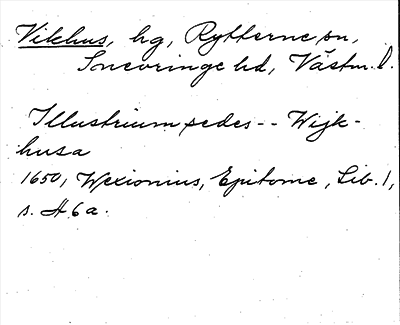 Vikhus, hg, Rytterne sn,
Snevringe hd, Västm. l.
Illustrium sedes -- Wijk-
husa
1650, Wexionius, Epitome, Lib. 1,
s. H 6 a.